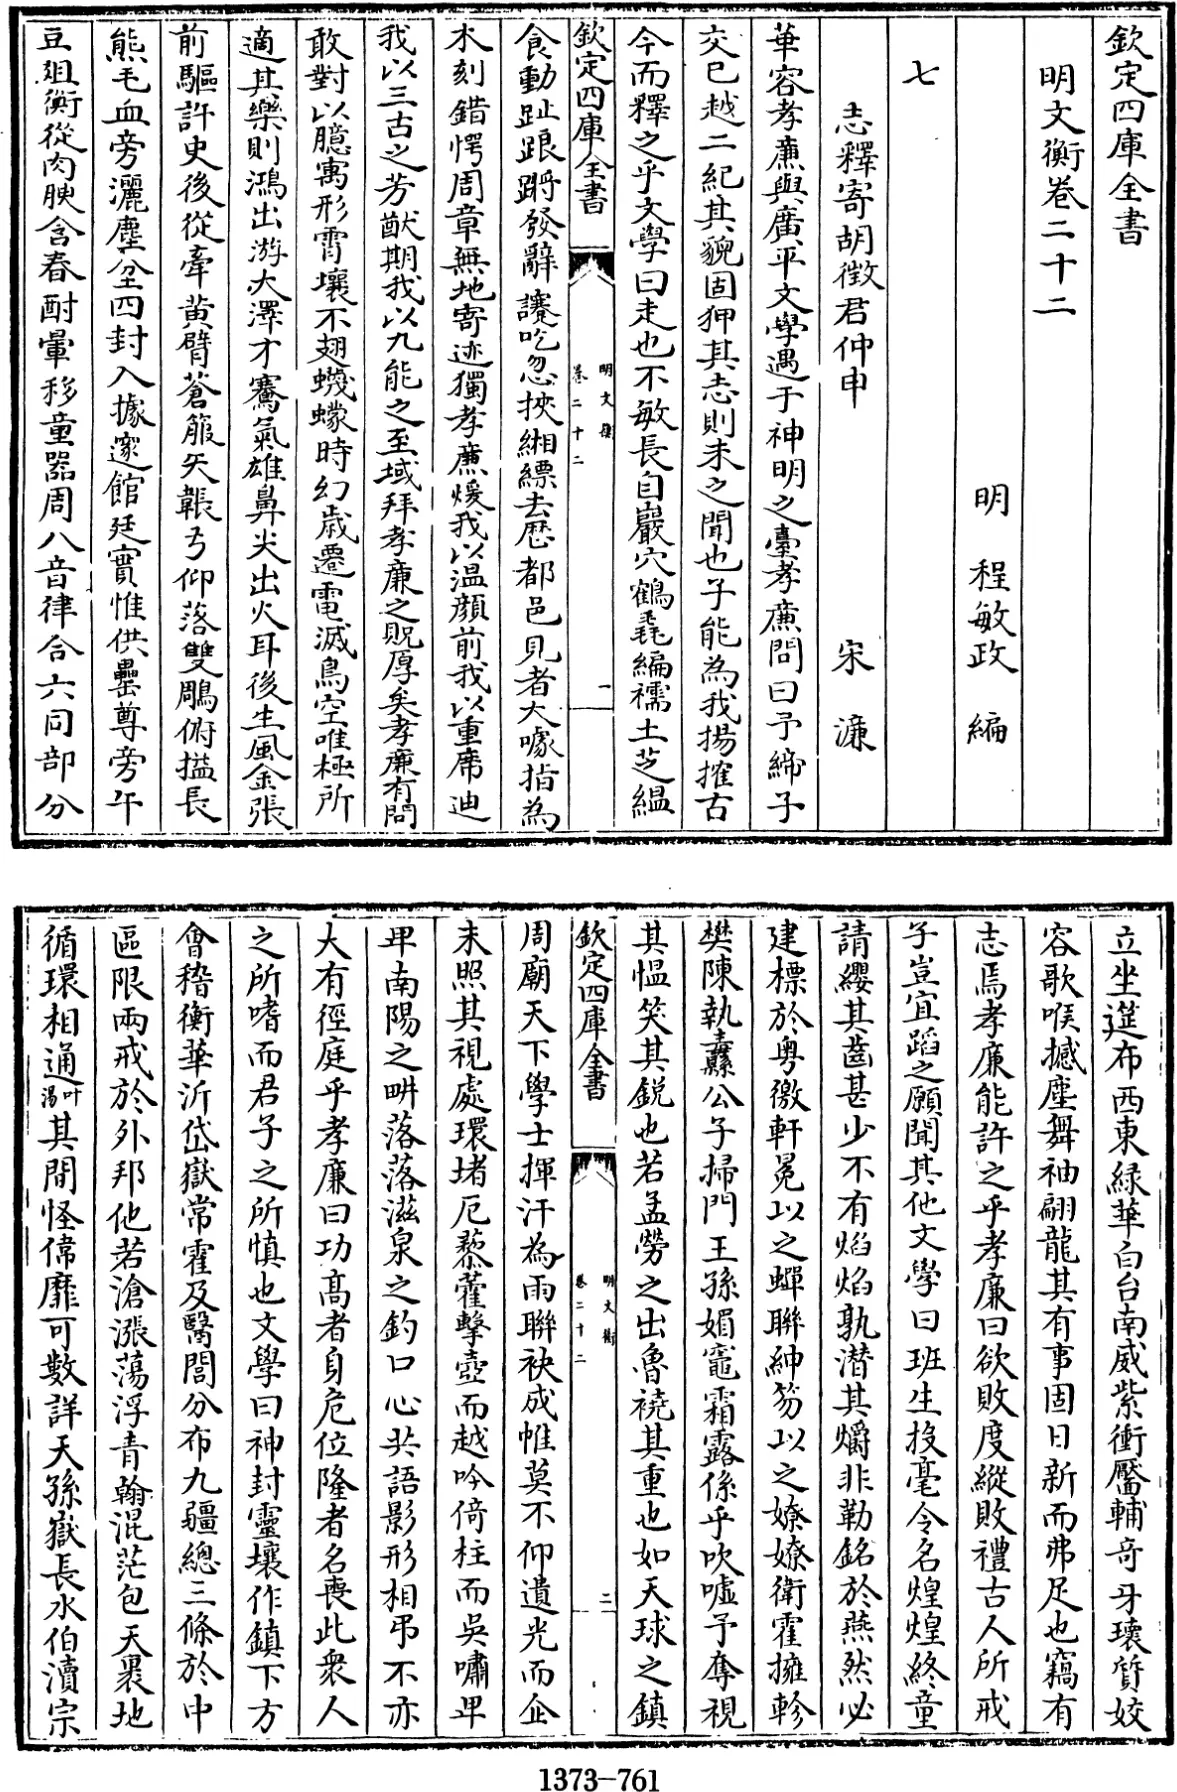 欽定四庫全書
明文衡卷二十二
明　程敏政　編
七
志釋寄胡徵君仲申　宋　濂
華容孝亷與廣平文學遇于神明之臺孝亷問曰予締子
交已越二紀其貌固狎其志則未之聞也子能為我揚搉古
今而釋之乎文學曰走也不敏長自巖穴鶴毳編襦土芝緼
欽定四庫全書
明文衡
卷二十二
一
食動趾踉蹡發辭讙吃忽挾緗縹去歴都邑見者大噱指為
木刻錯愕周章無地寄迹獨孝亷煖我以温顔前我以重席迪
我以三古之芳猷期我以九能之至域拜孝亷之貺厚矣孝亷有問
敢對以臆寓形霄壤不翅蠛蠓時幻歳遷電滅鳥空唯極所
適其樂則鴻出游大澤才騫氣雄鼻尖出火耳後生風金張
前驅許史後從牽黄臂蒼箙矢韔弓仰落雙鵰俯搤長
熊毛血旁灑塵坌四封入據邃館廷實惟供罍尊旁午
豆俎衡從肉腴含春酎暈移童器周八音律合六同部分
立坐筵布西東緑華白台南威紫衝靨輔奇牙瓌質姣
容歌喉撼塵舞袖翩龍其有事固日新而弗足也竊有
志焉孝亷能許之乎孝亷曰欲敗度縱敗禮古人所戒
子豈宜蹈之願聞其他文學曰班生投毫令名煌煌終童
請纓其齒甚少不有焰焰孰潜其爝非勒銘於燕然必
建標於粤徼軒冕以之蟬聯紳笏以之嫽嫽衛霍擁軫
樊陳執纛公子掃門王孫媚竈霜露係乎吹嘘予奪視
其愠笑其鋭也若孟勞之出魯襓其重也如天球之鎮
欽定四庫全書
明文衡
卷二十二
二
周廟天下學士揮汗為雨聯袂成帷莫不仰遺光而企
末照其視處環堵厄藜藿擊壺而越吟倚柱而吳嘯畢
卑南陽之畊落落滋泉之釣口心共語影形相弔不亦
大有徑庭乎孝亷曰功髙者身危位隆者名喪此衆人
之所嗜而君子之所慎也文學曰神封靈壤作鎮下方
會稽衡華沂岱嶽常霍及醫閭分布九疆總三條於中
區限兩戒於外邦他若滄漲蕩浮青翰混茫包天裹地
循環相通叶湯其間怪偉靡可數詳天孫嶽長水伯瀆宗
1373—761